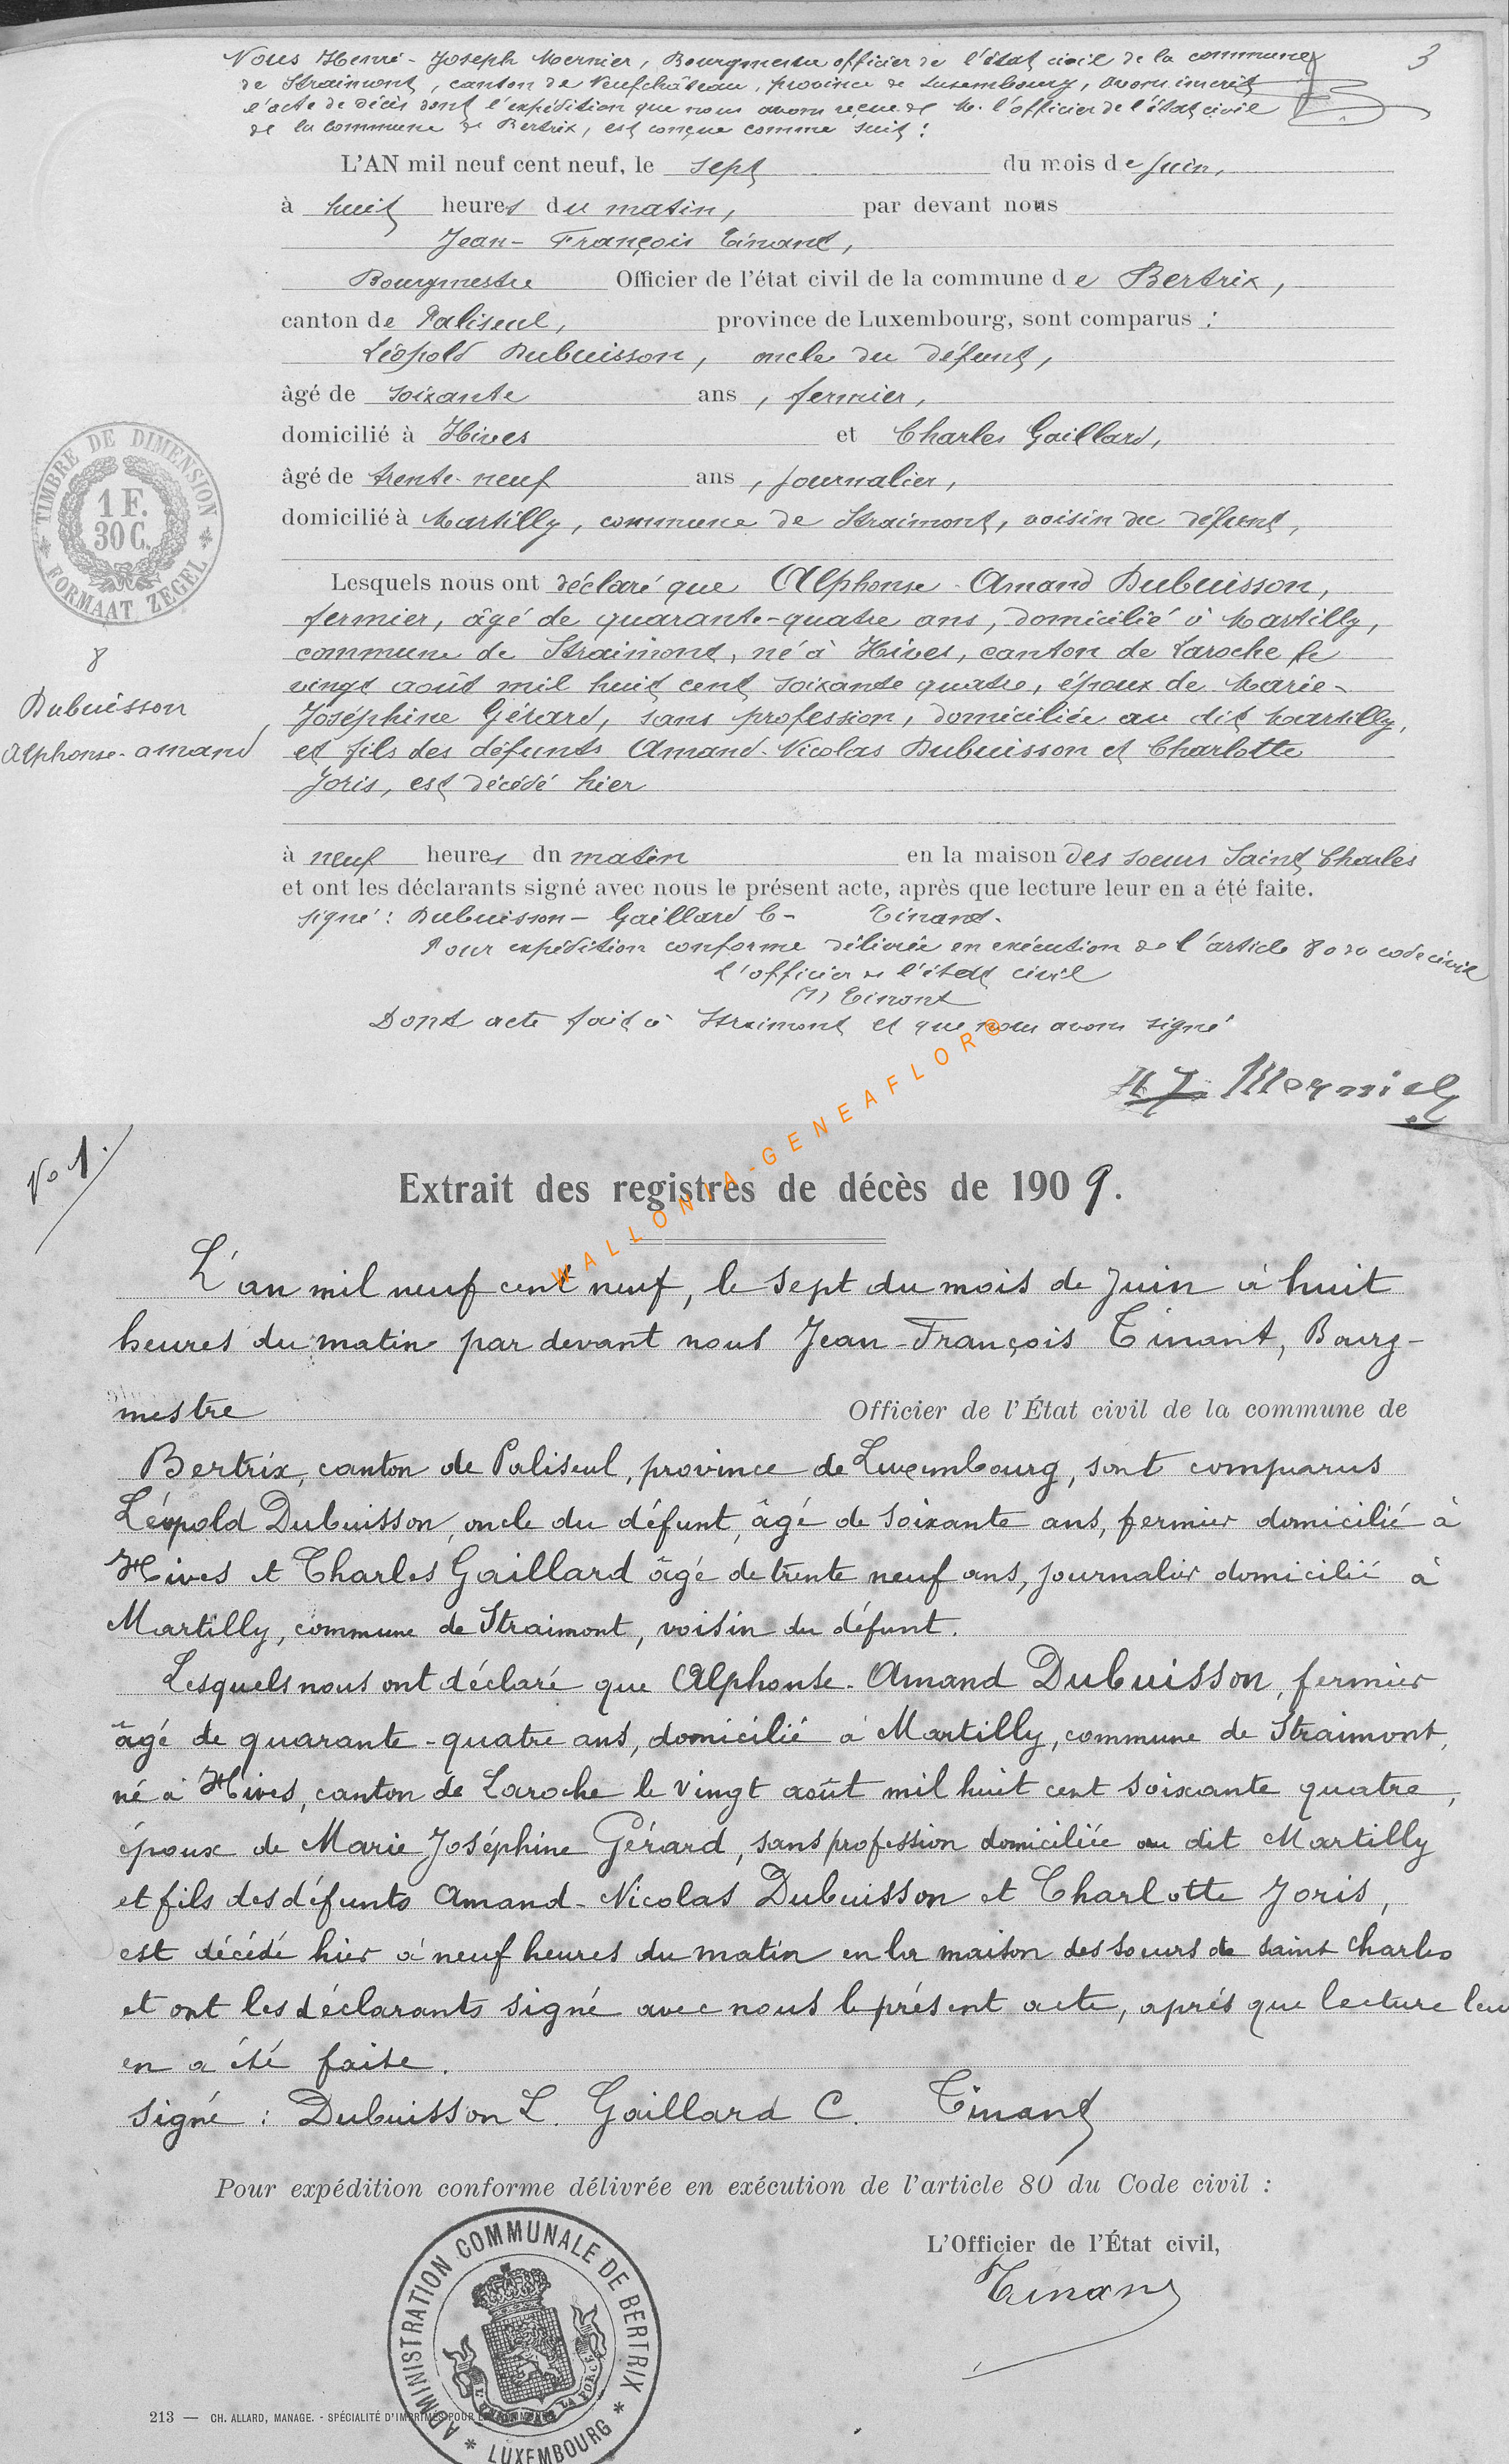 Nous Henri-Joseph Mernier, Bourgmestre officier de l'état civil de la commune
3
de Straimont, canton de Neufchâteau, province de Luxembourg, avons inscrit
l'acte de décès dont l'expédition que nous avons reçue de M. l'officier de l'état civil
de la commune de Bertrix, est conçue comme suit :
L'AN mil neuf cent neuf, le sept du mois de Juin,
à huit heures du matin, par devant nous
Jean-François Tinant,
Bourgmestre Officier de l'état civil de la commune de Bertrix,
canton de Paliseul, province de Luxembourg, sont comparus :
Léopold Dubuisson, oncle du défunt,
âgé de soixante ans, fermier,
domicilié à Hives et Charles Gaillard,
âgé de trente-neuf ans, journalier,
domicilié à Martilly, commune de Straimont, voisin du défunt,
TIMBRE DE DIMENSION
1 F.
30 C.
FORMAAT ZEGEL
Lesquels nous ont déclaré que Alphonse-Amand Dubuisson,
fermier, âgé de quarante-quatre ans, domicilié à Martilly,
commune de Straimont, né à Hives, canton de Laroche le
vingt août mil huit cent soixante quatre, époux de Marie-
Joséphine Gérard, sans profession, domiciliée au dit Martilly,
et fils des défunts Amand-Nicolas Dubuisson et Charlotte
Joris, est décédé hier
8
Dubuisson
Alphonse-amand
à neuf heures dn matin en la maison des soeurs Saint Charles
et ont les déclarants signé avec nous le présent acte, après que lecture leur en a été faite.
signé : Dubuisson - Gaillard C - Tinant.
Pour expédition conforme délivrée en exécution de l'article 80 du code civil
L'officier de l'état civil
(s) Tinant
Dont acte fait à Straimont et que nous avons signé
HJ Mernier
WALLONIA-GENEAFLOR©
No 1.
Extrait des registres de décès de 1909.
L'an mil neuf cent neuf, le sept du mois de Juin à huit
heures du matin par devant nous Jean-François Tinant, Bourg-
mestre Officier de l'État civil de la commune de
Bertrix, canton de Paliseul, province de Luxembourg, sont comparus
Léopold Dubuisson, oncle du défunt, âgé de soixante ans, fermier domicilié à
Hives et Charles Gaillard âgé de trente neuf ans, journalier domicilié à
Martilly, commune de Straimont, voisin du défunt.
Lesquels nous ont déclaré que Alphonse-Amand Dubuisson, fermier
âgé de quarante-quatre ans, domicilié à Martilly, commune de Straimont,
né à Hives, canton de Laroche le vingt août mil huit cent soixante quatre,
époux de Marie Joséphine Gérard, sans profession domiciliée au dit Martilly
et fils des défunts Amand-Nicolas Dubuisson et Charlotte Joris,
est décédé hier à neuf heures du matin en la maison des soeurs de saint Charles
et ont les déclarants signé avec nous le présent acte, après que lecture leu
en a été faite.
signé : Dubuisson L. Gaillard C. Tinant
Pour expédition conforme délivrée en exécution de l'article 80 du Code civil :
L'Officier de l'État civil,
Tinant
ADMINISTRATION COMMUNALE DE BERTRIX
LUXEMBOURG
213 — CH. ALLARD, MANAGE. - SPÉCIALITÉ D'IMPRIMÉS POUR